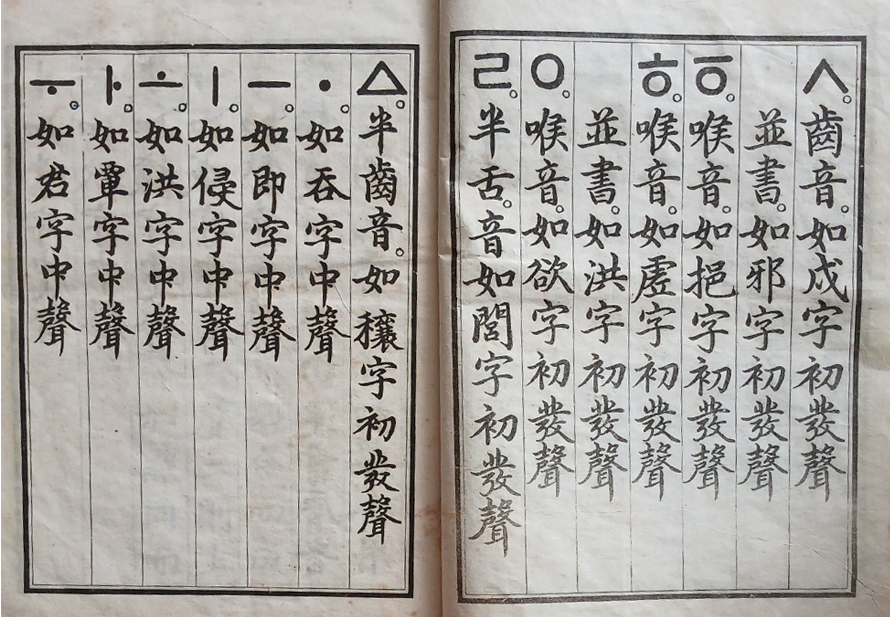 ㅅ。齒音。如戌字初發聲
並書。如邪字初發聲
ㆆ。喉音。如挹字初發聲
ㅎ。喉音。如虛字初發聲
並書。如洪字初發聲
ㅇ。喉音。如欲字初發聲
ㄹ。半舌。音如閭字初發聲
ㅿ。半齒音。如穰字初發聲
ㆍ。如吞字中聲
ㅡ。如即字中聲
ㅣ。如侵字中聲
ㅗ。如洪字中聲
ㅏ。如覃字中聲
ㅜ。如君字中聲